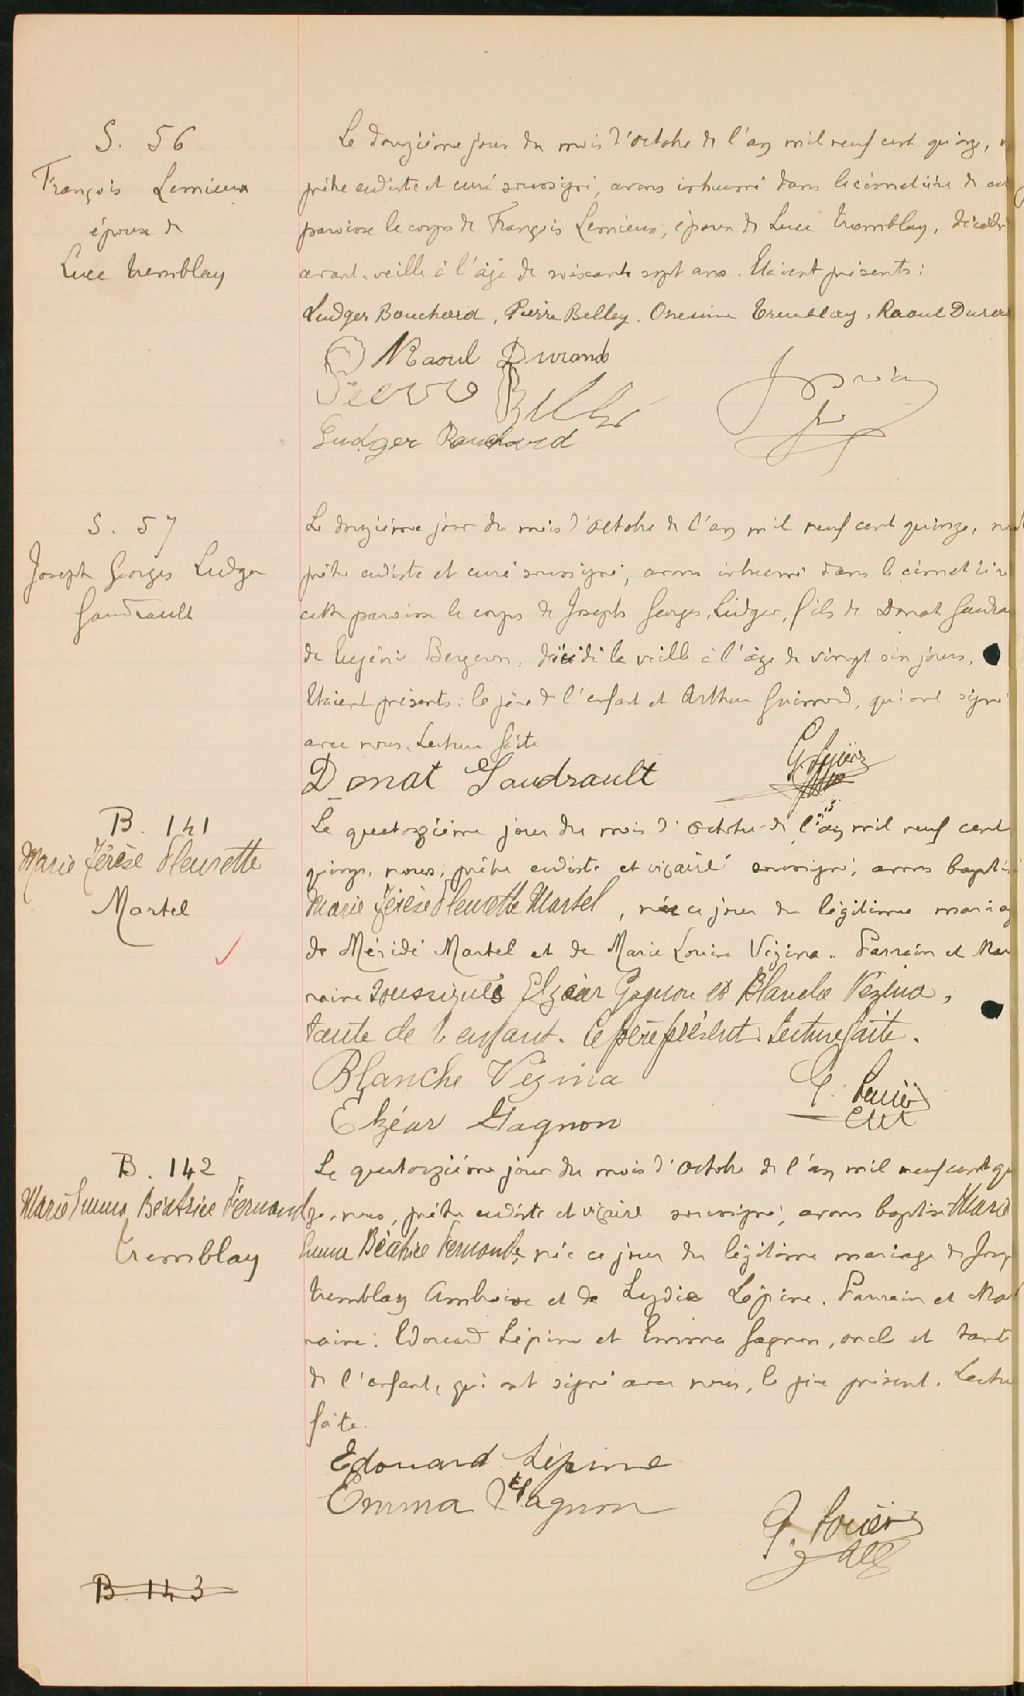 S. 56
François Lemieux
époux de
Luce Tremblay
Le douzième jour du mois d'octobre de l'an mil neuf cent quinze,
prêtre eudiste et curé soussigné, avons inhumé dans le cimetière de
paroisse le corps de François Lemieux, époux de Luce Tremblay, décédé
avant-veille à l'âge de soixante sept ans. Etaient présents:
Ludger Bouchard, Pierre Belley, Onesime Tremblay, Raoul Duran
Raoul Durand
Pierre Bellé
Ludger Bouchard
S. 57
Joseph Georges Ludger
Gaudrault
Le douzième jour du mois d'octobre de l'an mil neuf cent quinze,
prêtre eudiste et curé soussigné, avons inhumé dans le cimetière
cette paroisse le corps de Joseph Georges, Ludger, fils de Donat Gaudra
de Eugénie Bergeron, décédé la veille à l'âge de vingt six jours.
Etaient présents: le père de l'enfant et Arthur Guimond, qui ont signé
avec nous. Lecture faite
Donat Gaudrault
B. 141
Marie Térèse Fleurette
Martel
Le quatorzième jour du mois d'octobre de l'an mil neuf cent
quinze, nous, prêtre eudiste et vicaire soussigné, avons bapti
Marie Térèse Fleurette Martel, née ce jour du légitime mariag
de Méridé Martel et de Marie Louise Vézina. Parrain et Mar
raine soussignés Elzéar Gagnon et Blanche Vezina,
tante de l'enfant. Le père présent. Lecture faite.
Blanche Vézina
Elzéar Gagnon
B. 142
Marie Emma Béatrice Fernande
Tremblay
Le quatorzième jour du mois d'octobre de l'an mil neuf cent qu
ze, nous, prêtre eudiste et vicaire soussigné, avons baptisé Marie
Emma Béatrice Fernande, née ce jour du légitime mariage de Jos
Tremblay Ambroise et de Lydia Lépine. Parrain et Mar
raine: Edouard Lépine et Emma Gagnon, oncle et tante
de l'enfant, qui ont signé avec nous, le père présent. Lectu
faite.
Edouard Lépine
Emma Gagnon
B. 143